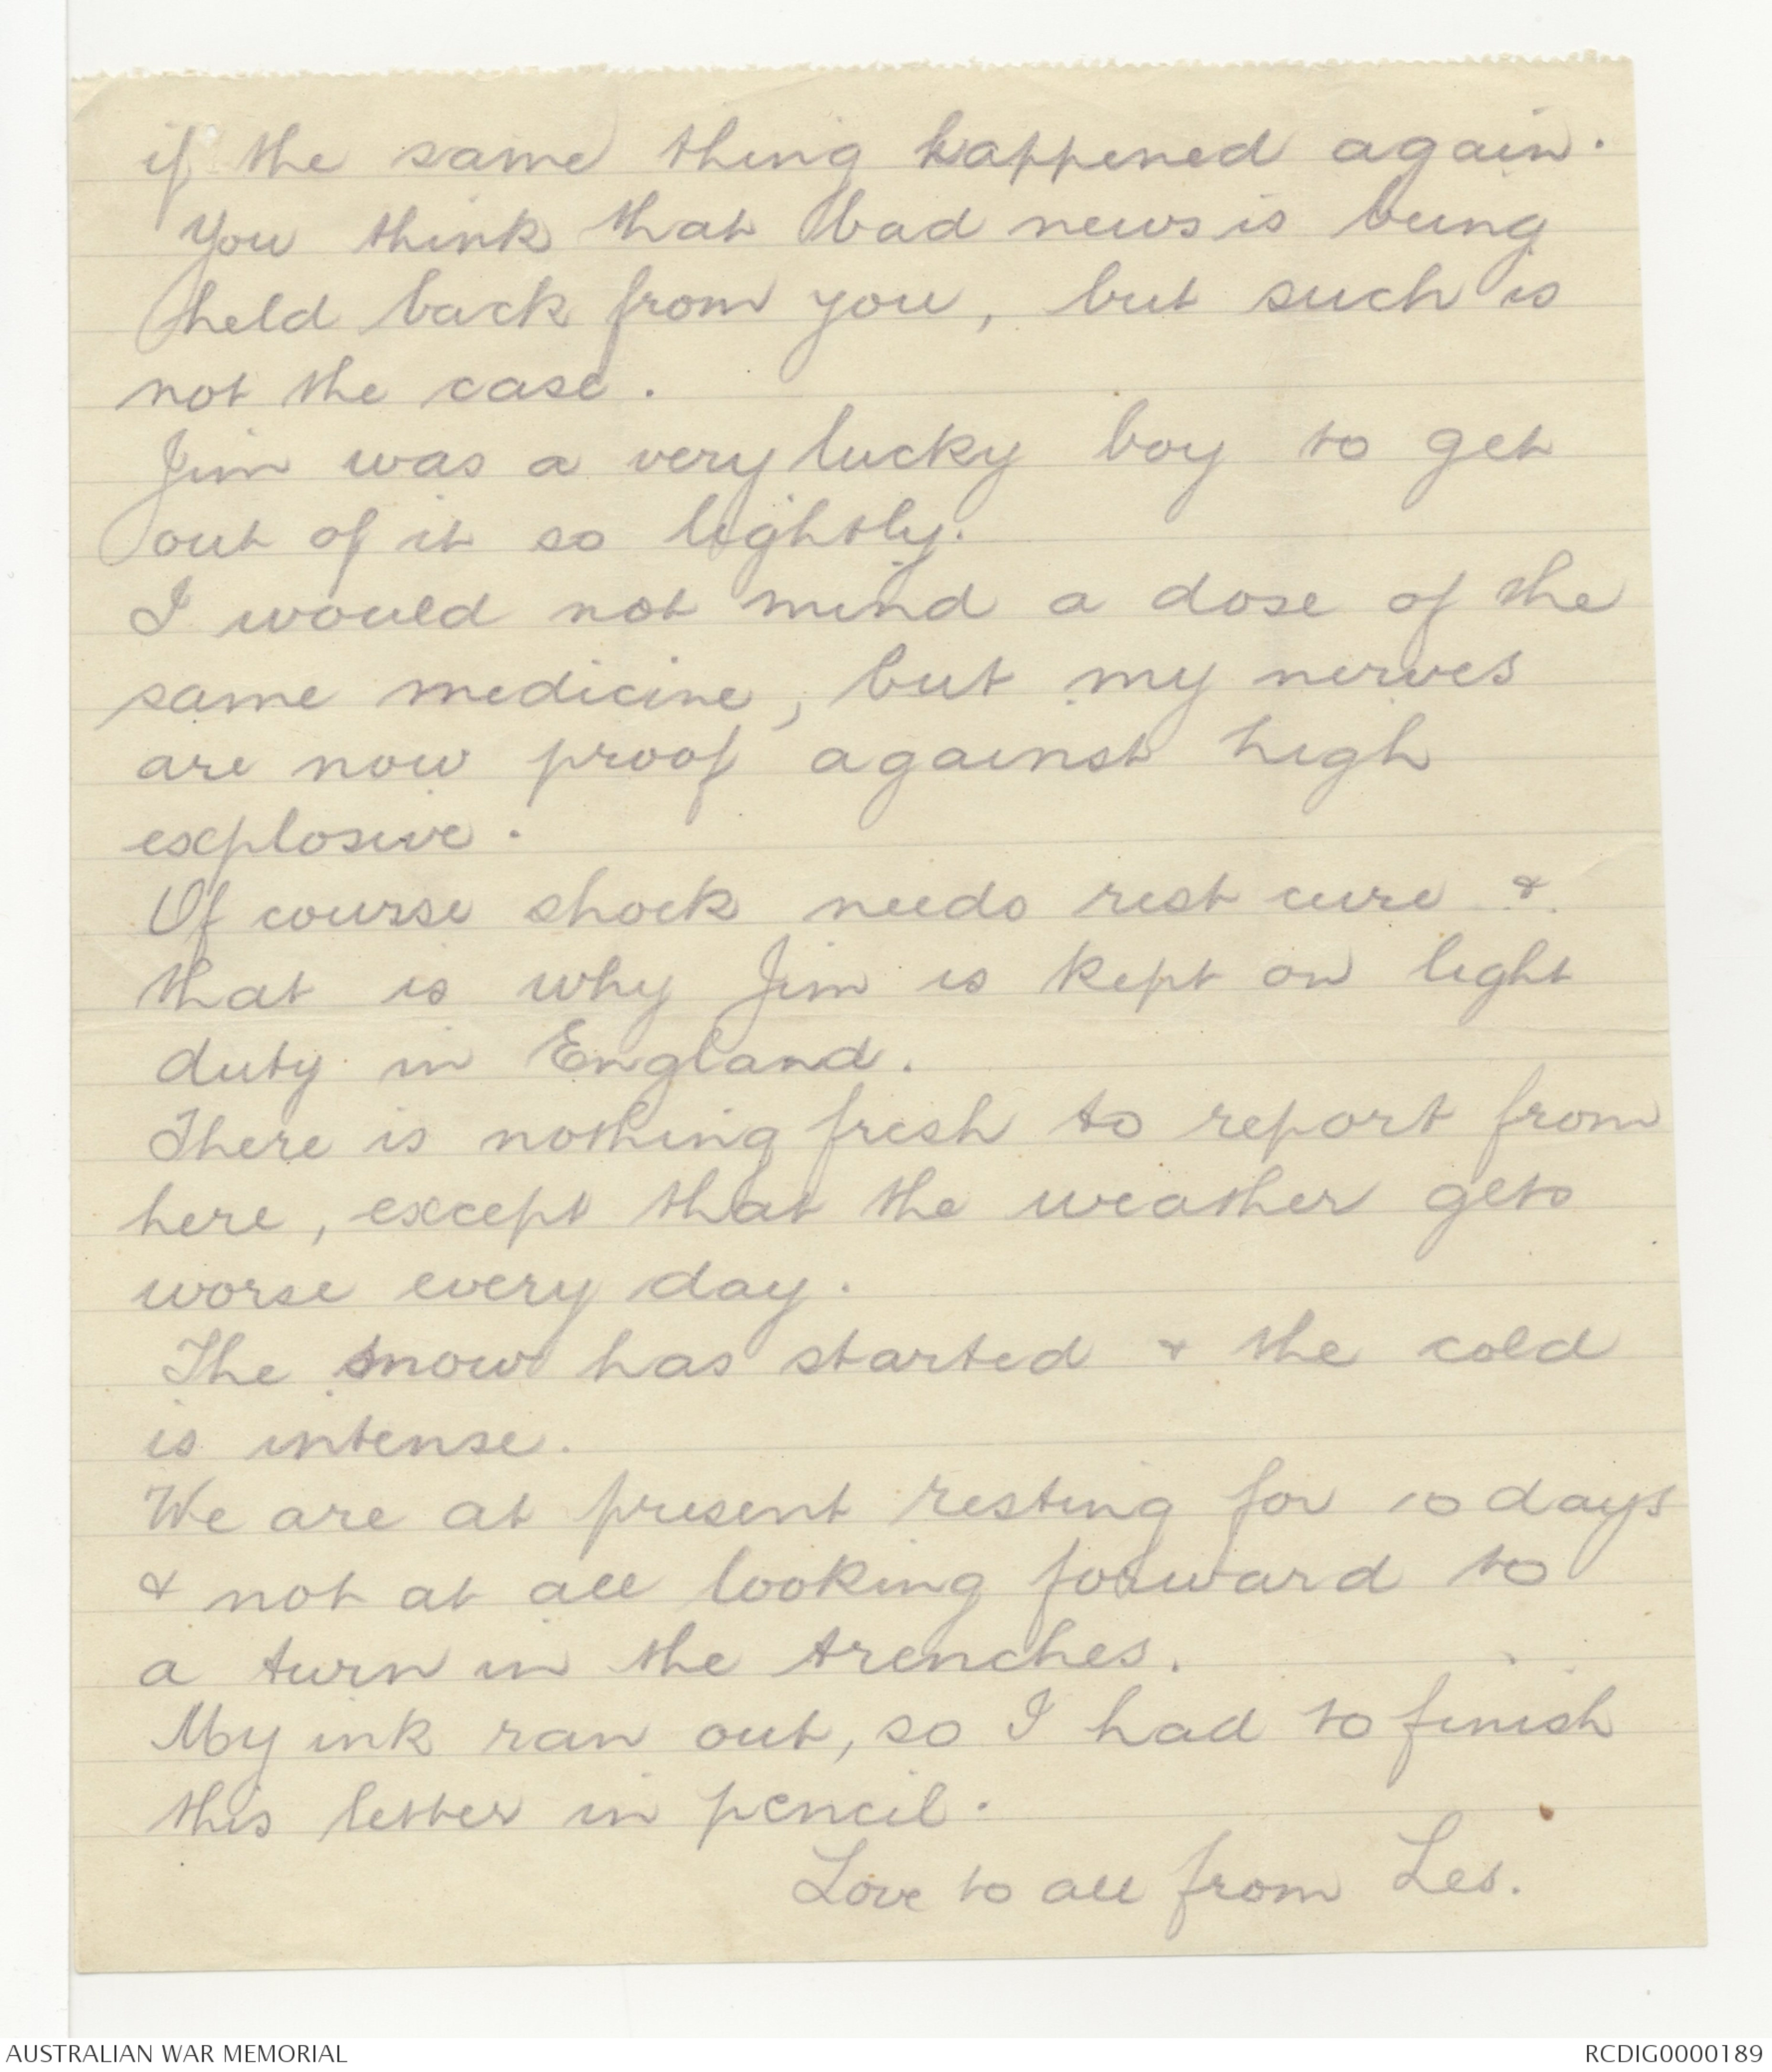 if the same thing happened again.
You think that bad news is being
held back from you, but such is
not the case.
Jim was a very lucky boy to get
out of it so lightly.
I would not mind a dose of the
same medicine, but my nerves
are now proof against high
explosive.
Of course shock needs rest cure &
that is why Jim is kept on light
duty in England.
There is nothing fresh to report from
here, except that the weather gets
worse every day.
The snow has started & the cold
is intense.
We are at present resting for 10 days
& not at all looking forward to
a turn in the trenches.
My ink ran out, so I had to finish
this letter in pencil.
Love to all from Les.
AUSTRALIAN WAR MEMORIAL
RCDIG0000189